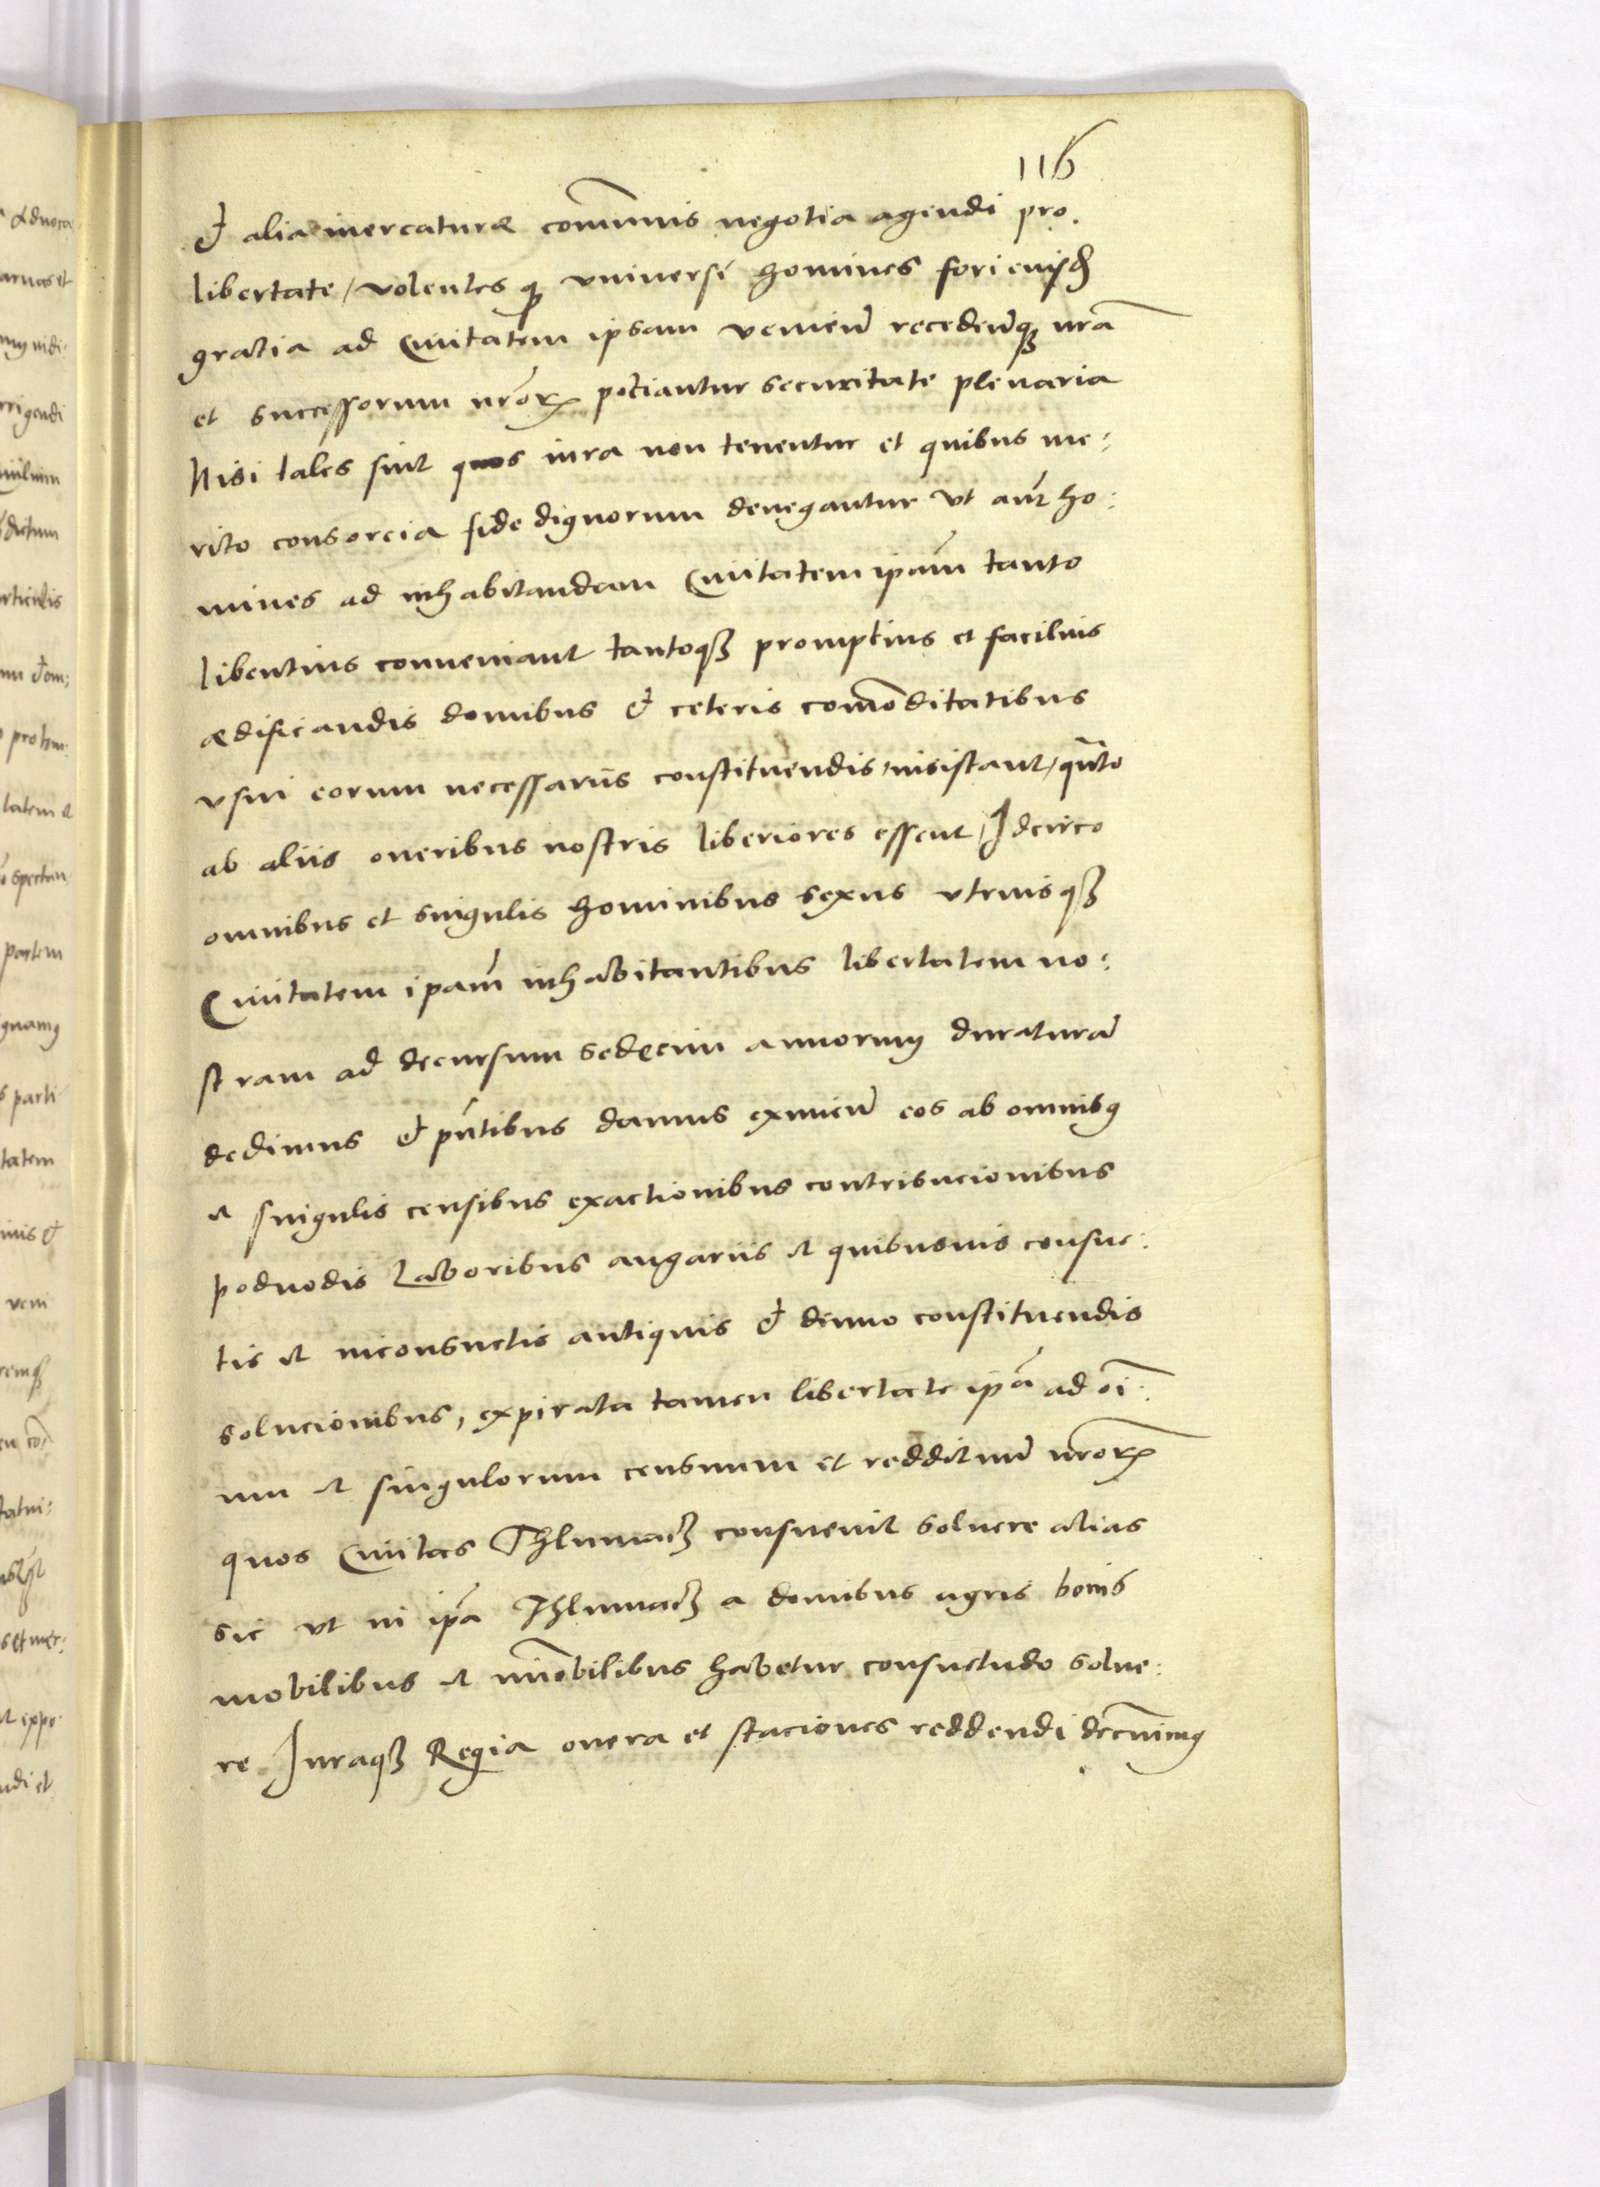 116
& alia mercaturæ com̄unis negotia agendi pro.
libertate / volentes ꝙ vniuersi homines fori eiusd̄
gratia ad Ciuitatem ipsam venien̄ receden̄q₃ nrā
et successorum nrōꝝ pociantur securitate plenaria
Nisi tales sint quos iura non tenentur et quibus me:
rito consorcia fide dignorum denegantur Vt aūt ho:
mines ad inhabitandam Ciuitatem ipām tanto
libentius conueniant tantoq₃ promptius et facilius
ædificandis domibus & ceteris com̄oditatibus
vsui eorum necessariis constituendis, insistant / qūto
ab aliis oneribus nostris liberiores essent / Idcirco
omnibus et singulis hominibus sexus vtriusq₃
Ciuitatem ipām inhabitantibus libertatem no:
stram ad decursum sedecim annorum duraturā
dedimus & pn̄tibus damus eximien̄ eos ab omnibꝰ
et singulis censibus exactionibus contribucionibus
poduodis Laboribus angariis et quibusuis consue:
tis et inconsuetis antiquis & denuo constituendis
solucionibus, expirata tamen libertate ipā ad oī:
um et singulorum censuum et reddituū nrōrꝝ
quos Ciuitas Thlumacz consueuit soluere alias
sic vt in ipā Thlumacz a domibus agris bonis
mobilibus et im̄obilibus habetur consuetudo solue:
re Juraq₃ Regia onera et staciones reddendi decernimꝰ